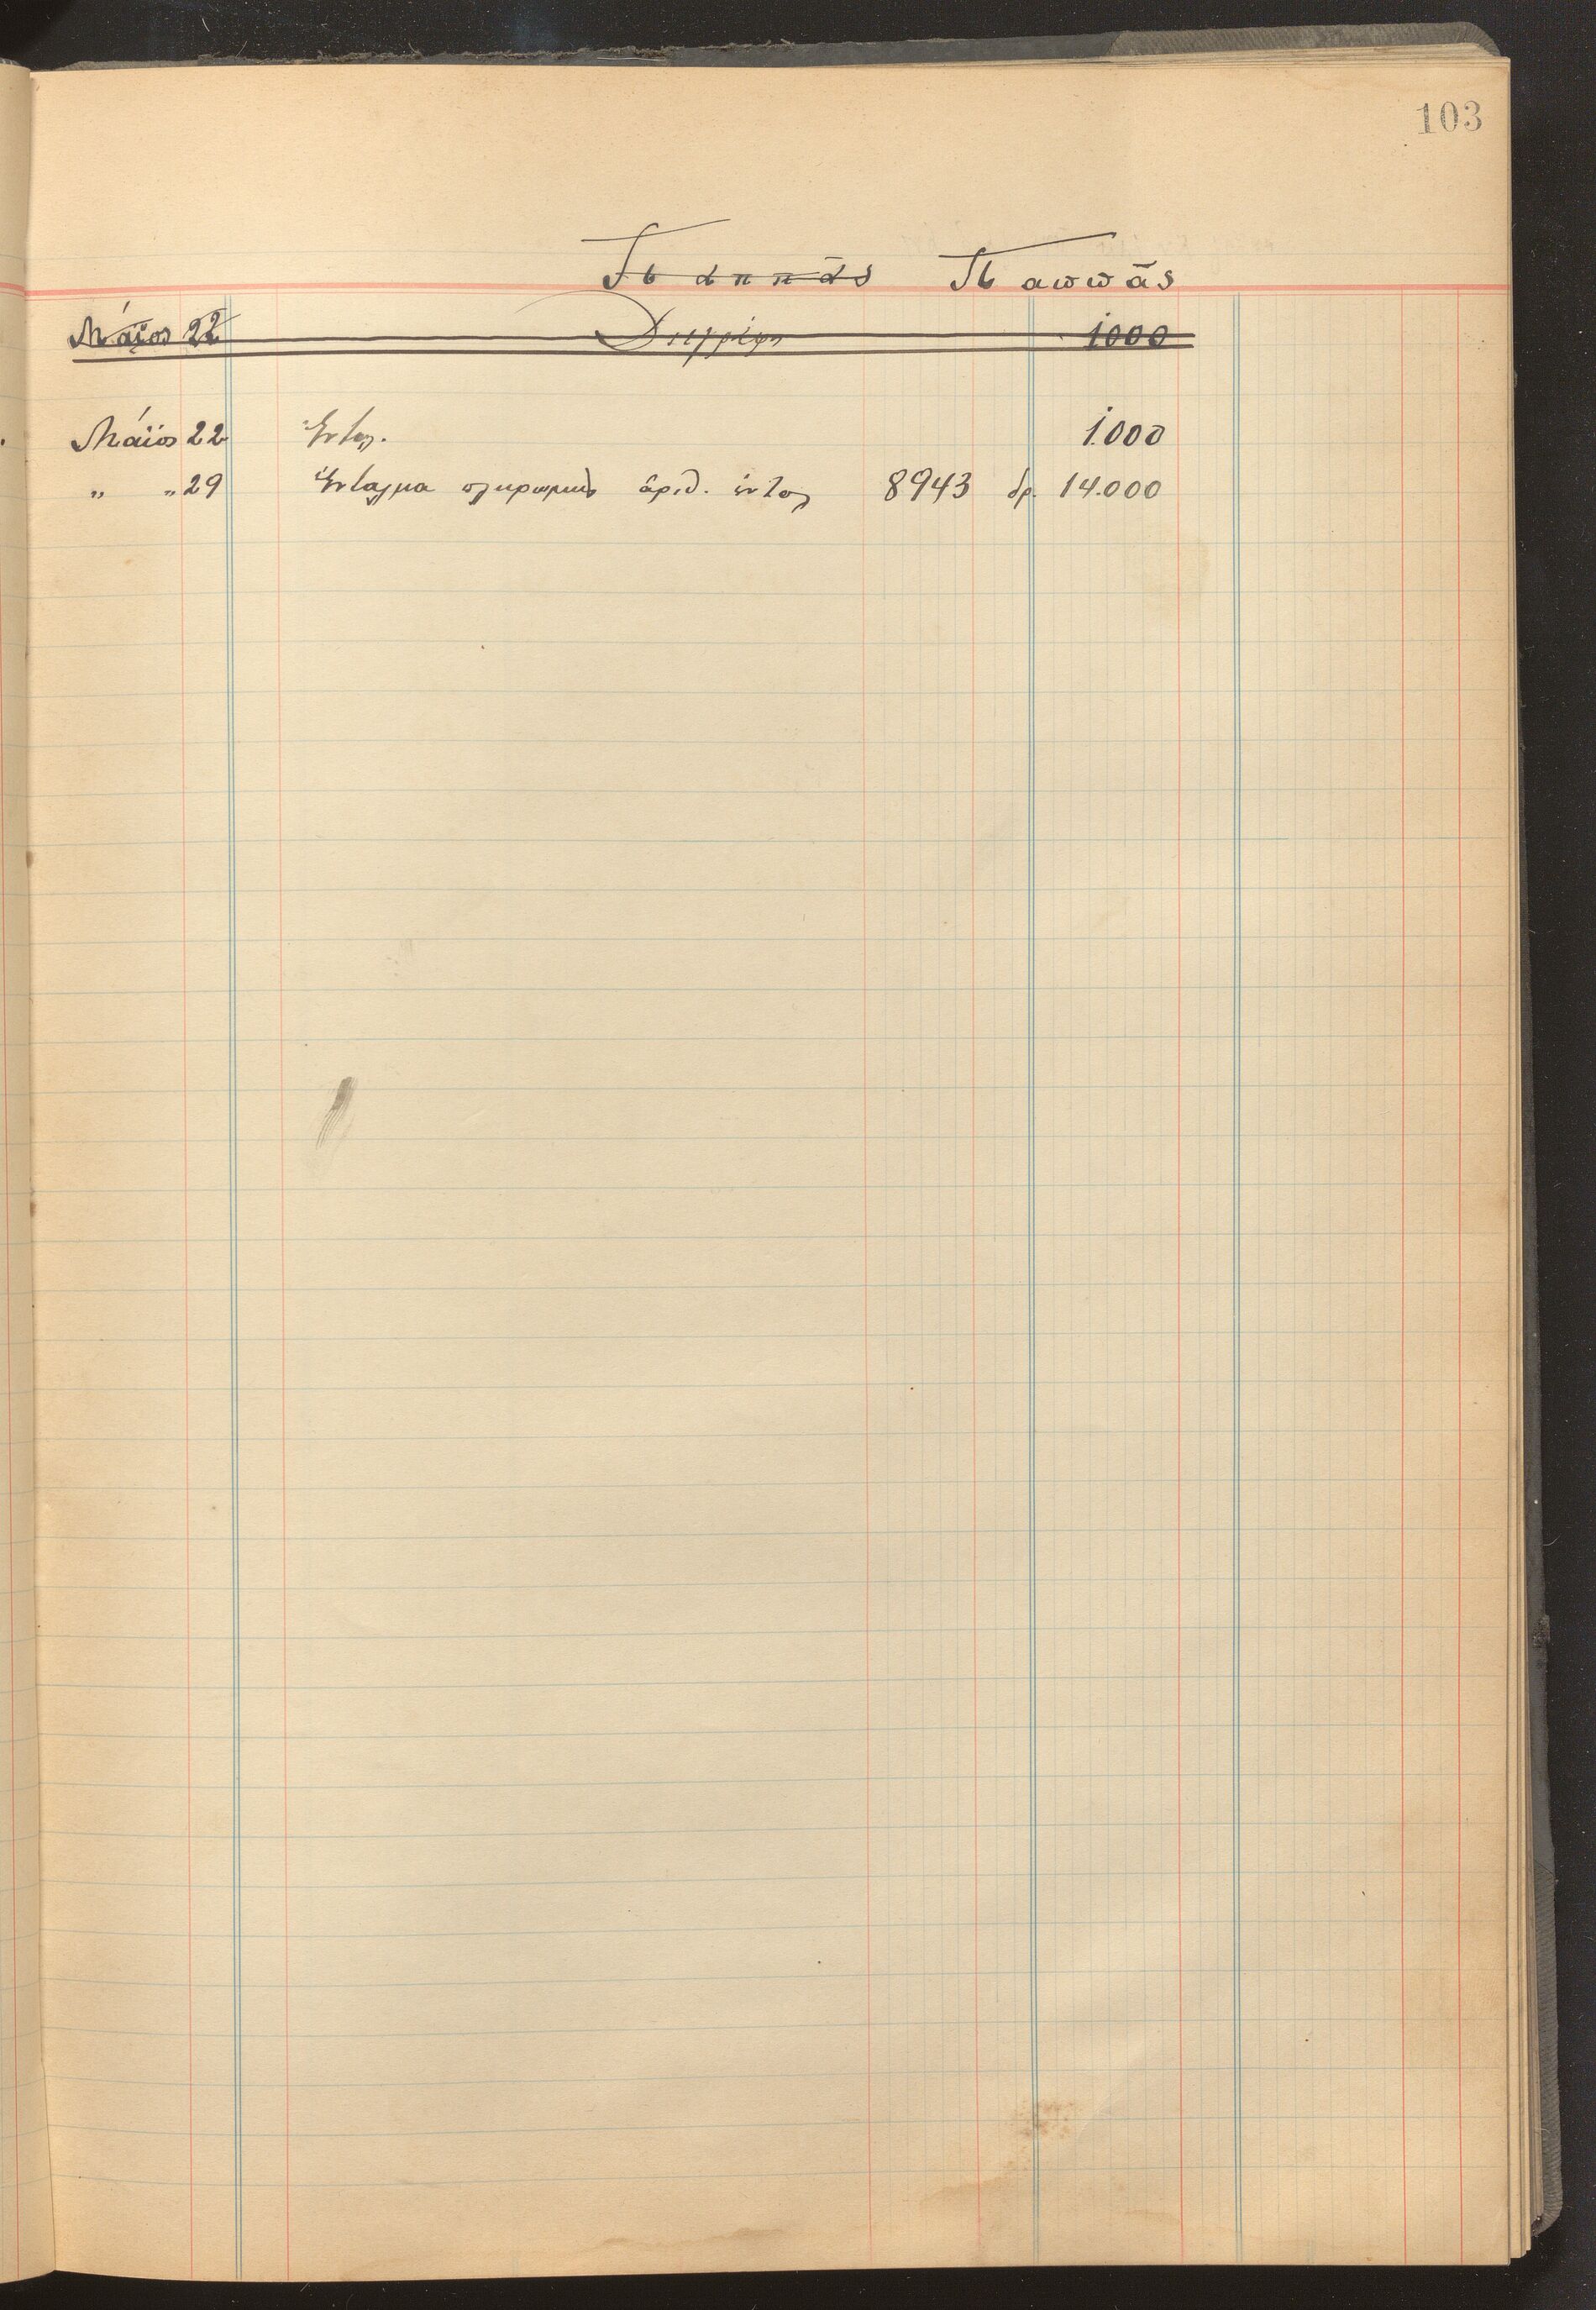 103
Παππᾶς Παππᾶς
Μάϊος 22 Διεγράφη 1000
Μάϊος 22 Ἔνταλ. 1.000
„ „ 29 Ἔνταλμα πληρωμῆς ἀριθ. ἐνταλ 8943 δρ. 14.000